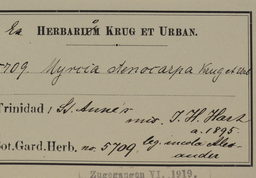 Ex HERBARIUM KRUG ET URBAN.
5709. Myrcia stenocarpa Krug et Urb.
Trinidad: St. Anne's
mis. J. H. Hart
a. 1895.
Bot. Gard. Herb. no. 5709. leg. incola Alex-
ander
Zugegangen VI. 1919.